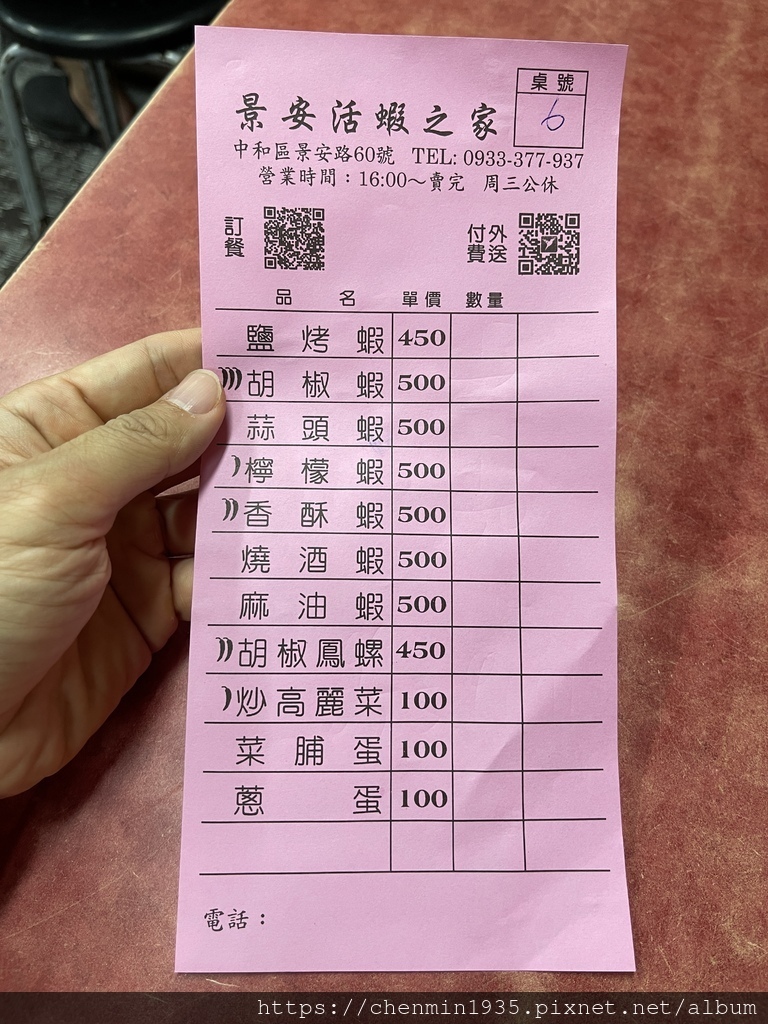 桌號
6
景安活蝦之家
中和區景安路60號 TEL: 0933-377-937
營業時間：16:00～賣完 周三公休
訂餐
外送付費
品名 單價 數量
鹽烤蝦 450
胡椒蝦 500
蒜頭蝦 500
檸檬蝦 500
香酥蝦 500
燒酒蝦 500
麻油蝦 500
胡椒鳳螺 450
炒高麗菜 100
菜脯蛋 100
蔥蛋 100
電話：
https://chenmin1935.pixnet.net/album